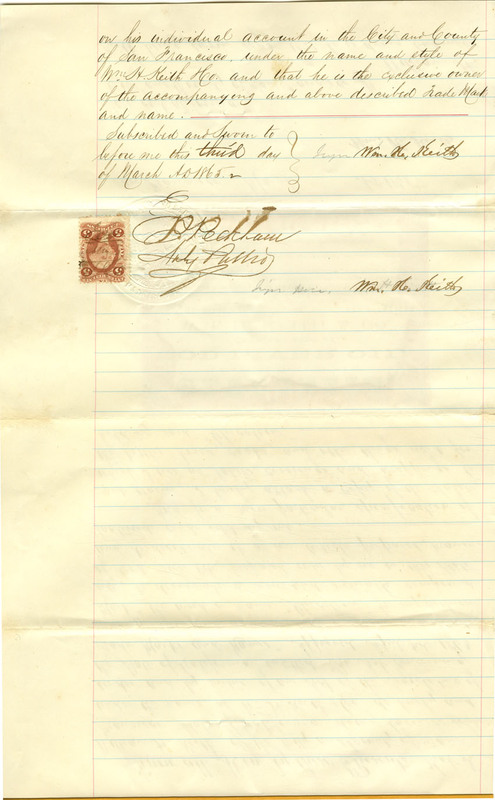 on his individual account in the City and County
of San Francisco, under the name and style of
Wm. H. Keith & Co. and that he is the exclusive owner
of the accompanying and above described Trade Mark
and name.
Subscribed and Sworn to
before me this third day
of March A.D. 1865
Wm. H. Keith
E.
Peckham
Noty Public
Sign here, Wm. H. Keith